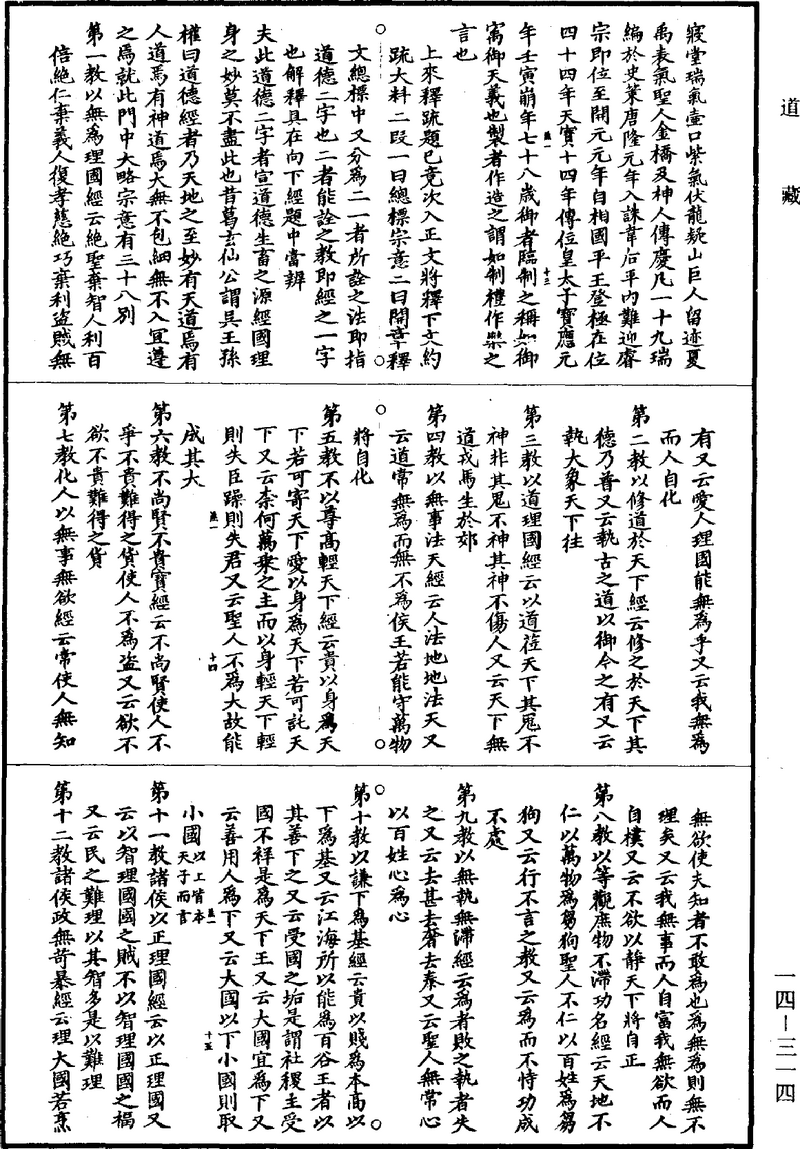 道藏
寢堂瑞氣壺口紫氣伏龍疑山巨人留迹夏
禹表氣聖人金橋及神人傳慶凡一十九瑞
編於史策唐隆元年入誅韋后平內難迎睿
宗即位至開元元年自相國平王登極在位
四十四年天寶十四年傳位皇太子寶應元
年壬寅崩年七十八歲御者臨制之稱如御
寓御天義也製者作造之謂如制禮作樂之
言也
上來釋䟽題已竟次入正文將釋下文約
䟽大科二段一曰總標宗意二曰開章釋
文總標中又分為二一者所詮之法即指
道德二字也二者能詮之教即經之一字
也解釋具在向下經題中當辨
夫此道德二字者宣道德生畜之源經國理
身之妙莫不盡此也昔葛玄仙公謂吳王孫
權曰道德經者乃天地之至妙有天道焉有
人道焉有神道焉大無不包細無不入宜遵
之焉就此門中大略宗意有三十八別
第一教以無為理國經云絕聖棄智人利百
倍絕仁棄義人復孝慈絕巧棄利盜賊無
十三
有又云愛人理國能無為乎又云我無為
而人自化
第二教以修道於天下經云修之於天下其
德乃普又云執古之道以御今之有又云
執大象天下往
第三教以道理國經云以道莅天下其鬼不
神非其鬼不神其神不傷人又云天下無
道戎馬生於郊
第四教以無事法天經云人法地地法天又
云道常無為而無不為侯王若能守萬物
將自化
第五教不以尊高輕天下經云貴以身為天
下若可寄天下愛以身為天下若可託天
下又云柰何萬乘之主而以身輕天下輕
則失臣躁則失君又云聖人不為大故能
成其大
第六教不尚賢不貴寶經云不尚賢使人不
爭不貴難得之貨使人不為盜又云欲不
欲不貴難得之貨
第七教化人以無事無欲經云常使人無知
十四
無欲使夫知者不敢為也為無為則無不
理矣又云我無事而人自富我無欲而人
自樸又云不欲以靜天下將自正
第八教以等觀庶物不滯功名經云天地不
仁以萬物為芻狗聖人不仁以百姓為芻
狗又云行不言之教又云為而不恃功成
不處
第九教以無執無滯經云為者敗之執者失
之又云去甚去奢去泰又云聖人無常心
以百姓心為心
第十教以謙下為基經云貴以賤為本高以
下為基又云江海所以能為百谷王者以
其善下之又云受國之垢是謂社稷主受
國不祥是為天下王又云大國宜為下又
云善用人為下又云大國以下小國則取
小國以上皆本天子而言
第十一教諸侯以正理國經云以正理國又
云以智理國國之賊不以智理國國之福
又云民之難理以其智多是以難理
第十二教諸侯政無苛暴經云理大國若烹
十五
一四—三一四